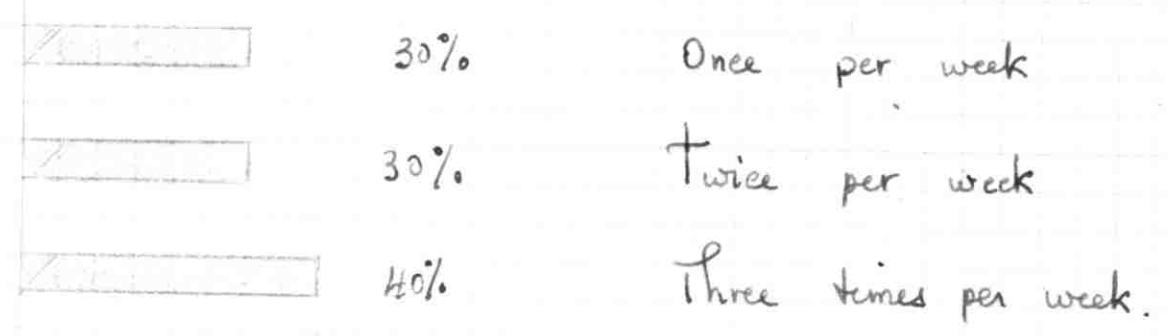 30% Once per week
30% Twice per week
40% Three times per week.